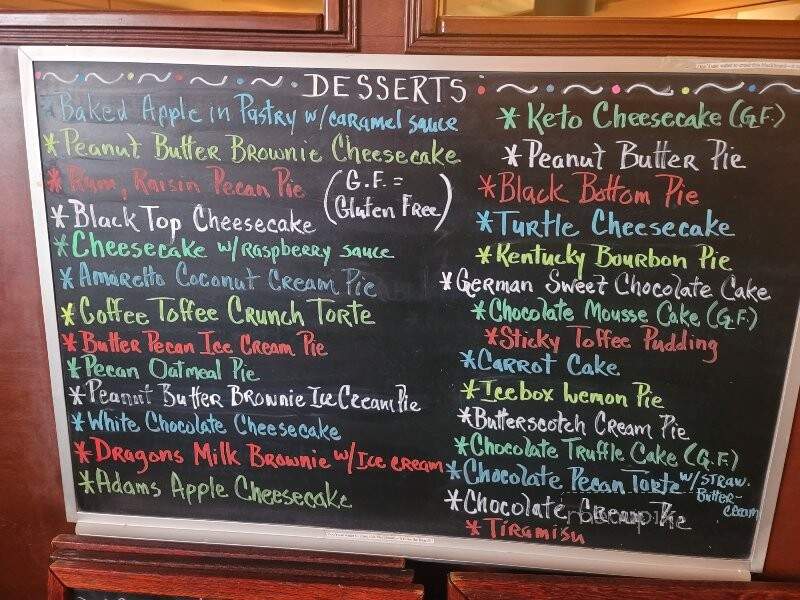 DESSERTS
*Baked Apple in Pastry w/caramel sauce
*Peanut Butter Brownie Cheesecake
*Rum, Raisin Pecan Pie
(G.F. =
Gluten Free)
*Black Top Cheesecake
*Cheesecake w/raspberry sauce
*Amaretto Coconut Cream Pie
*Coffee Toffee Crunch Torte
*Butter Pecan Ice Cream Pie
*Pecan Oatmeal Pie
*Peanut Butter Brownie Ice Cream Pie
*White Chocolate Cheesecake
*Dragons Milk Brownie w/Ice cream
*Adams Apple Cheesecake
*Keto Cheesecake (G.F.)
*Peanut Butter Pie
*Black Bottom Pie
*Turtle Cheesecake
*Kentucky Bourbon Pie
*German Sweet Chocolate Cake
*Chocolate Mousse Cake (G.F.)
*Sticky Toffee Pudding
*Carrot Cake
*Icebox Lemon Pie
*Butterscotch Cream Pie
*Chocolate Truffle Cake (G.F.)
*Chocolate Pecan Torte w/STRAW.
Butter-
cream
*Chocolate Cream Pie
*Tiramisu